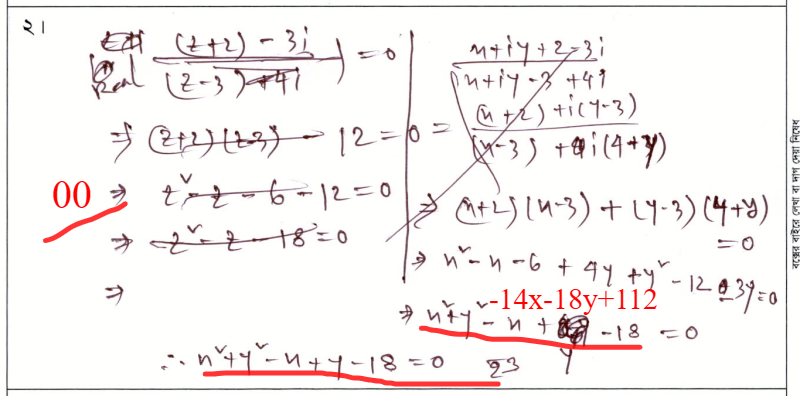 ২১
Real ((z+2) - 3i / (z-3)+4i) = 0
⇒ (z+2)(z-3) - 12 = 0
00 ⇒ z² - z - 6 - 12 = 0
⇒ z² - z - 18 = 0
⇒
x+iy+2-3i / x+iy-3+4i
= (x+2)+i(y-3) / (x-3)+i(4+y)
⇒ (x+2)(x-3) + (y-3)(4+y) = 0
⇒ x² - x - 6 + 4y + y² - 12 - 3y = 0
-14x-18y+112
⇒ x²+y² - x + y - 18 = 0
∴ x²+y²-x+y-18 = 0
বক্সের বাইরে লেখা বা দাগ দেয়া নিষেধ